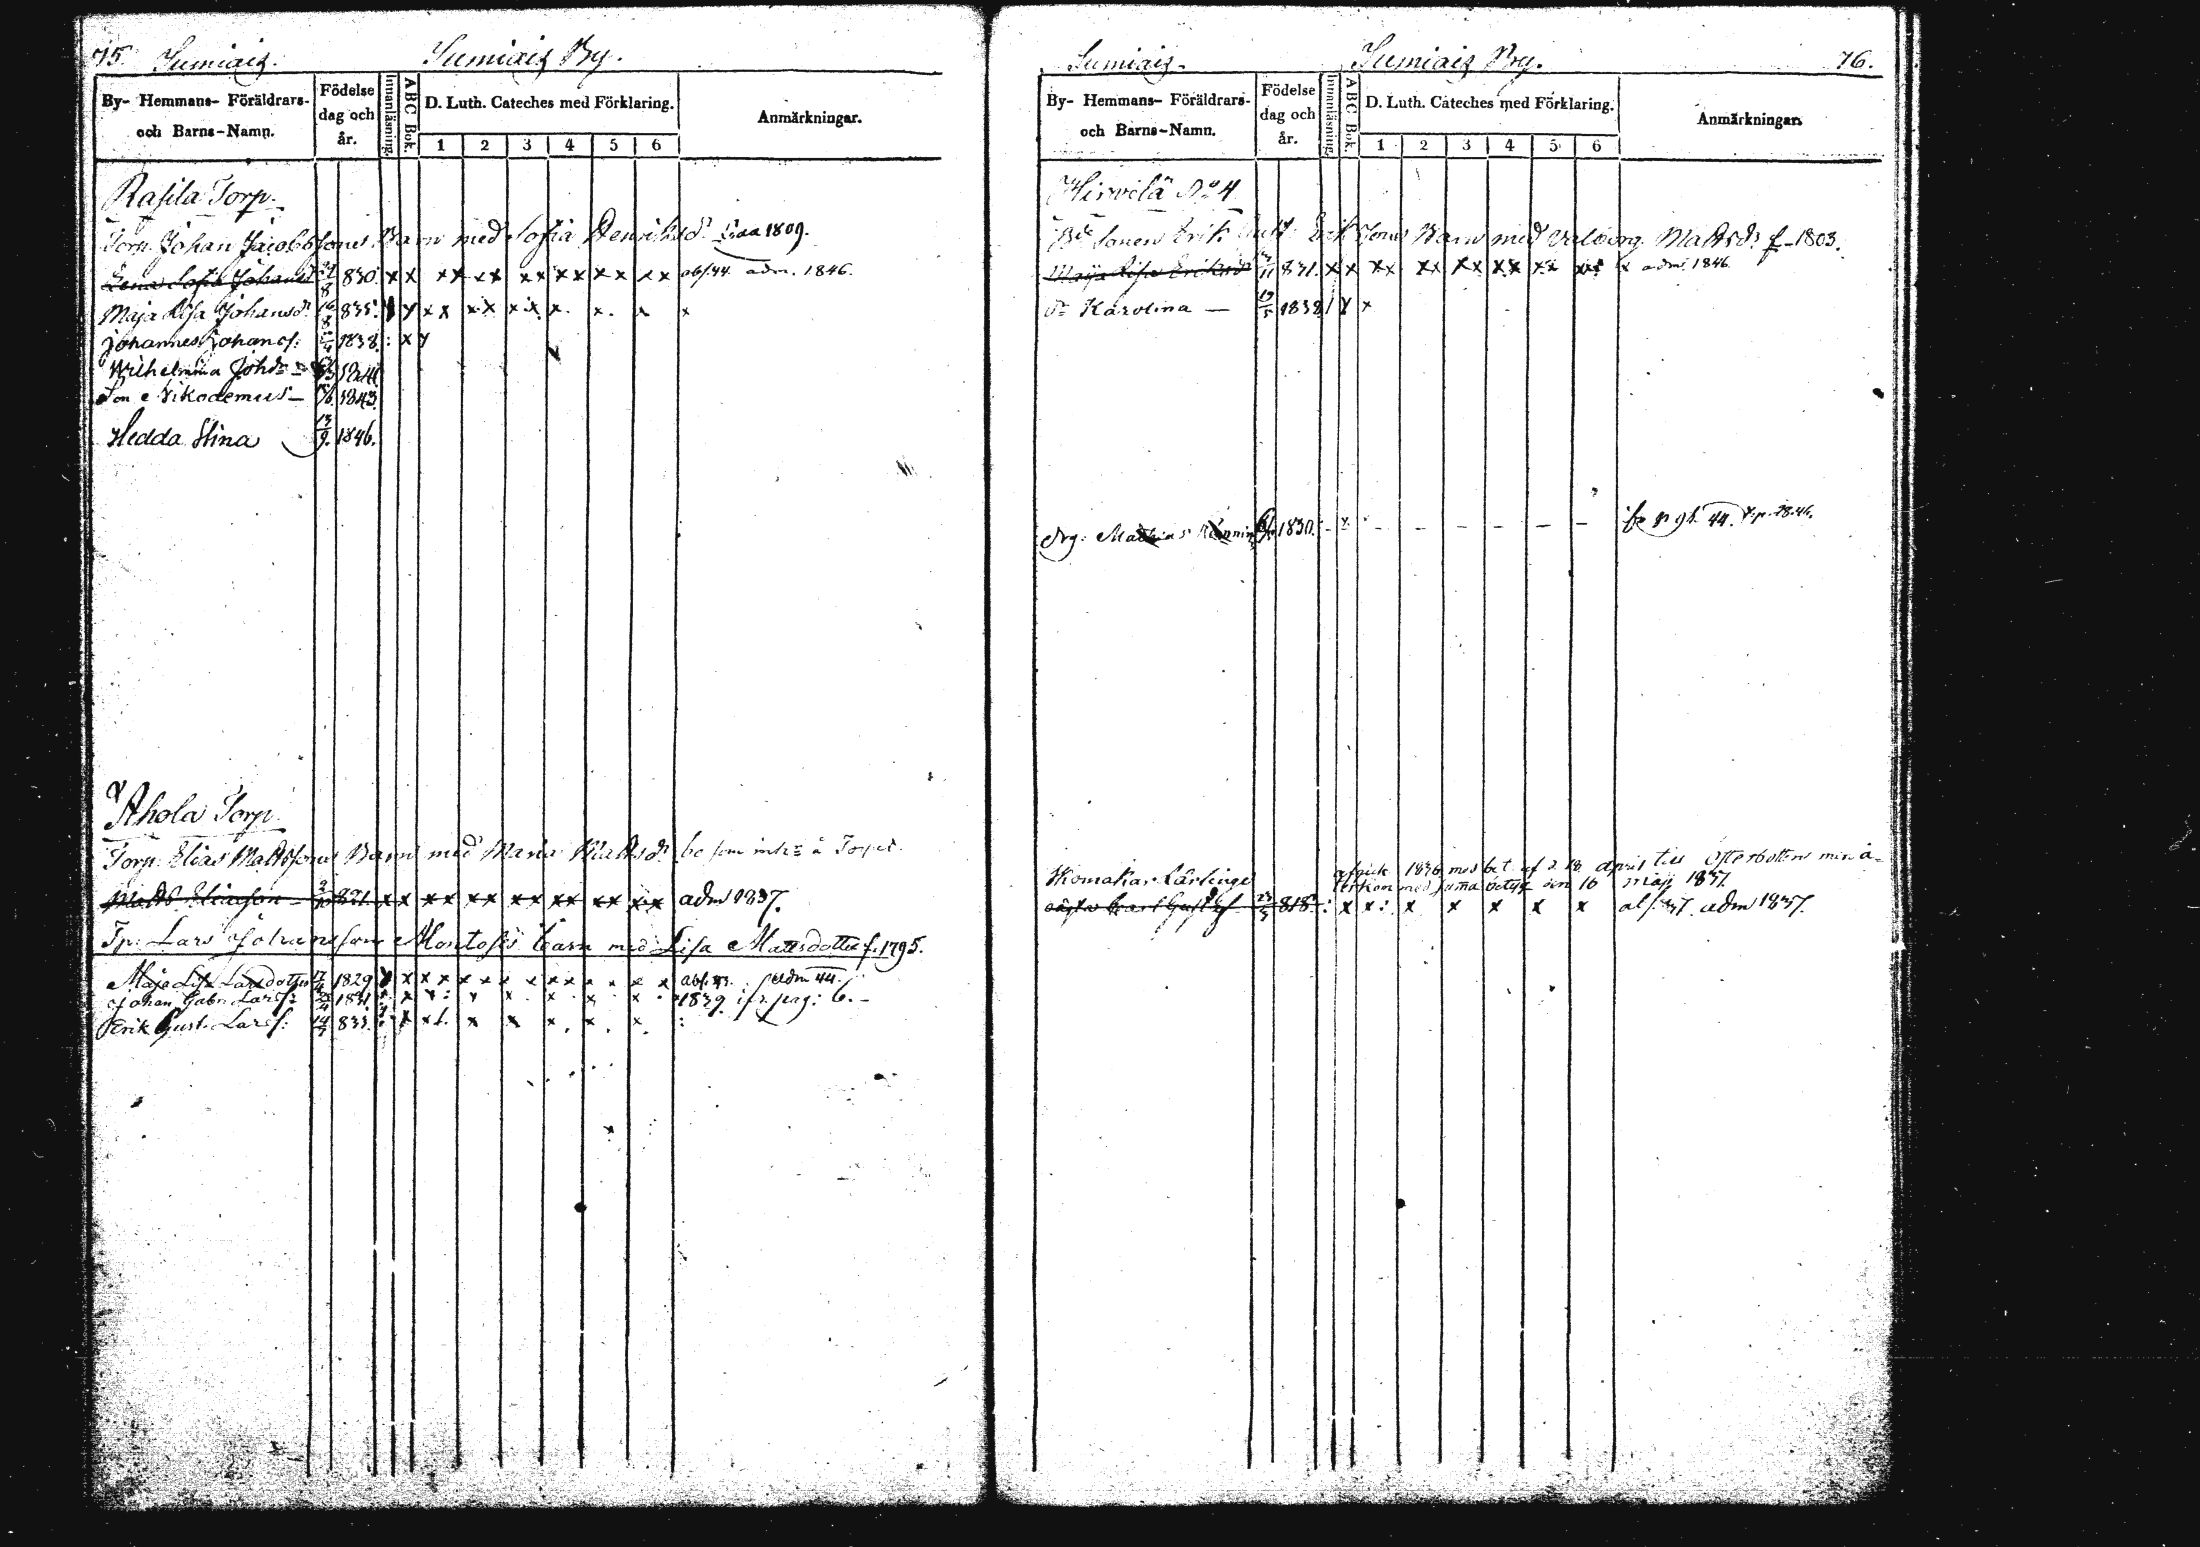 75. Sumiais. Sumiais By.
By- Hemmans- Föräldrars- och Barns-Namn. Födelse dag och år. Innanläsning. ABC Bok. D. Luth. Cateches med Förklaring. Anmärkningar.
1 2 3 4 5 6
Rasila Torp.
Torp. Johan Jacobssons Barn med Sofia Henriksdr 1809.
Lena Sofia Johansdr 8 830. x x xx xx xx xx xx xx abs. 44. adm. 1846.
Maja Lisa Johansdr 16/8 835. x x x x x x x x x
Johannes Johans: 1838. : x y
Wilhelmina Johdr 1841
Son Nikodemus – 1843.
Hedda Stina 13/9. 1846.
Ahola Torp.
Torp. Elias Mattssons Barn med Maria Mattsdr bo som inhs å Torpet.
Matts Eliasson 2/10 821 xx xx xx xx xx xx xx adm 1837.
Tp: Lars Johansson Montosis barn med Lisa Mattsdotter f. 1795.
Maja Lisa Larsdotter 17 1829 x x x x x x x x x x x x abs. 43. adm 44.
Johan Gabr. Lars: 1831 x x x x x x 1839 pag: 6. –
Erik Gust. Lars: 14 833. x x x x x x x :
Sumiais. Sumiais By. 76.
By- Hemmans- Föräldrars- och Barns-Namn. Födelse dag och år. Innanläsning. ABC Bok. D. Luth. Cateches med Förklaring. Anmärkningar.
1 2 3 4 5 6
Hirvelä No 4
Bde Sonen Erik Erik Jonss Barn med Valborg Mattsdr f – 1803.
Maija Lisa Eriksdr 11 831. x x xx xx xx xx xx xx x adm. 1846
Dr Karolina – 19/5 1838. / y x
Drg: Mathias 1830. – x – – – – – – 44.
Skomakar Lärlinge
afgick 1836 med bet. af d. 18 April till Österbotten men å-
terkom med samma betyg den 16 Maji 1837.
Carl Gust 23/5 818. : x x : x x x x x abs. 37. adm 1837.